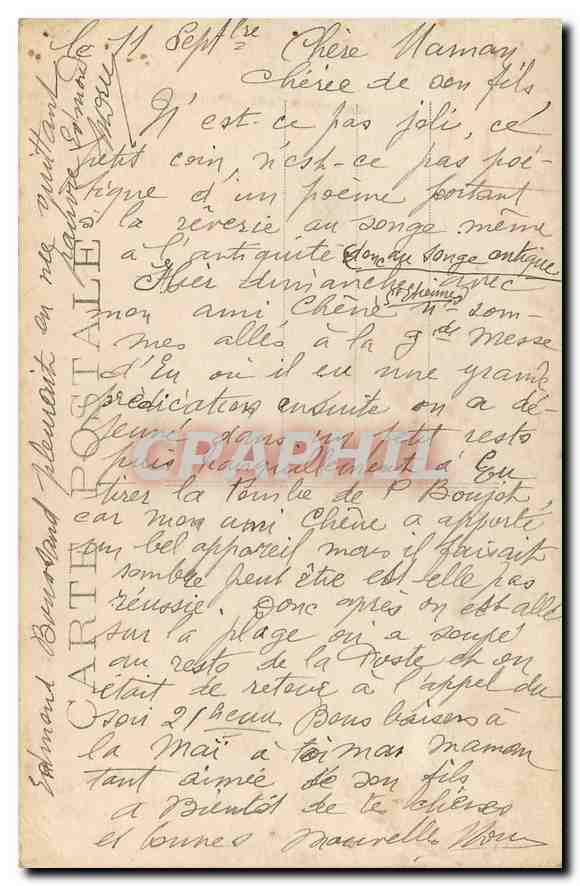 Le 11 Sept^bre Chère Maman
chérie de son fils
N'est-ce pas joli, ce
petit coin, n'est-ce pas poé-
tique d'un poème portant
la rêverie au songe même
à l'antiquité donc au songe antique
Hier dimanche avec
mon ami Chêne (St Etienne) n. som-
mes allés à la gde messe
d'Eu où il eu une grande
prédication ensuite on a dé-
jeuné dans un petit resto
puis tranquillement à Eu
tirer la Tombe de P
car mon ami Chêne a apporté
un bel appareil mais il faisait
sombre peut être est elle pas
réussie. Donc après on est allé
sur la plage on a soupé
au resto de la Poste et on
était de retour à l'appel du
soir 21 heur Bons baisers à
la Maï à toi mar maman
tant aimée de son fils
a Bientôt de te chères
et bonnes nouvelles
Edmond pleurait en me quittant
pauvre Edmond
CARTE POSTALE
CRAPHIL